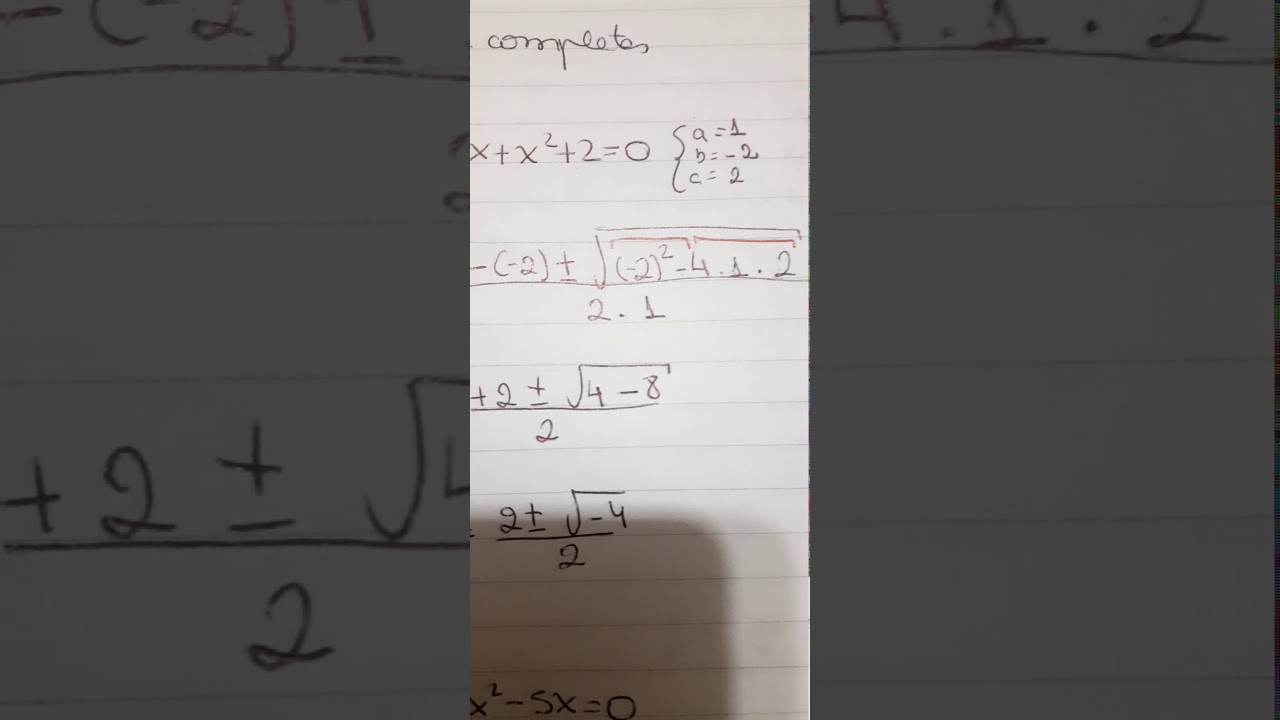 completes
x+x²+2=0 { a=1
b=-2
c=2
-(-2) ± √(-2)²-4.1.2
2.1
+2 ± √4-8
2
= 2± √-4
2
x²-5x=0